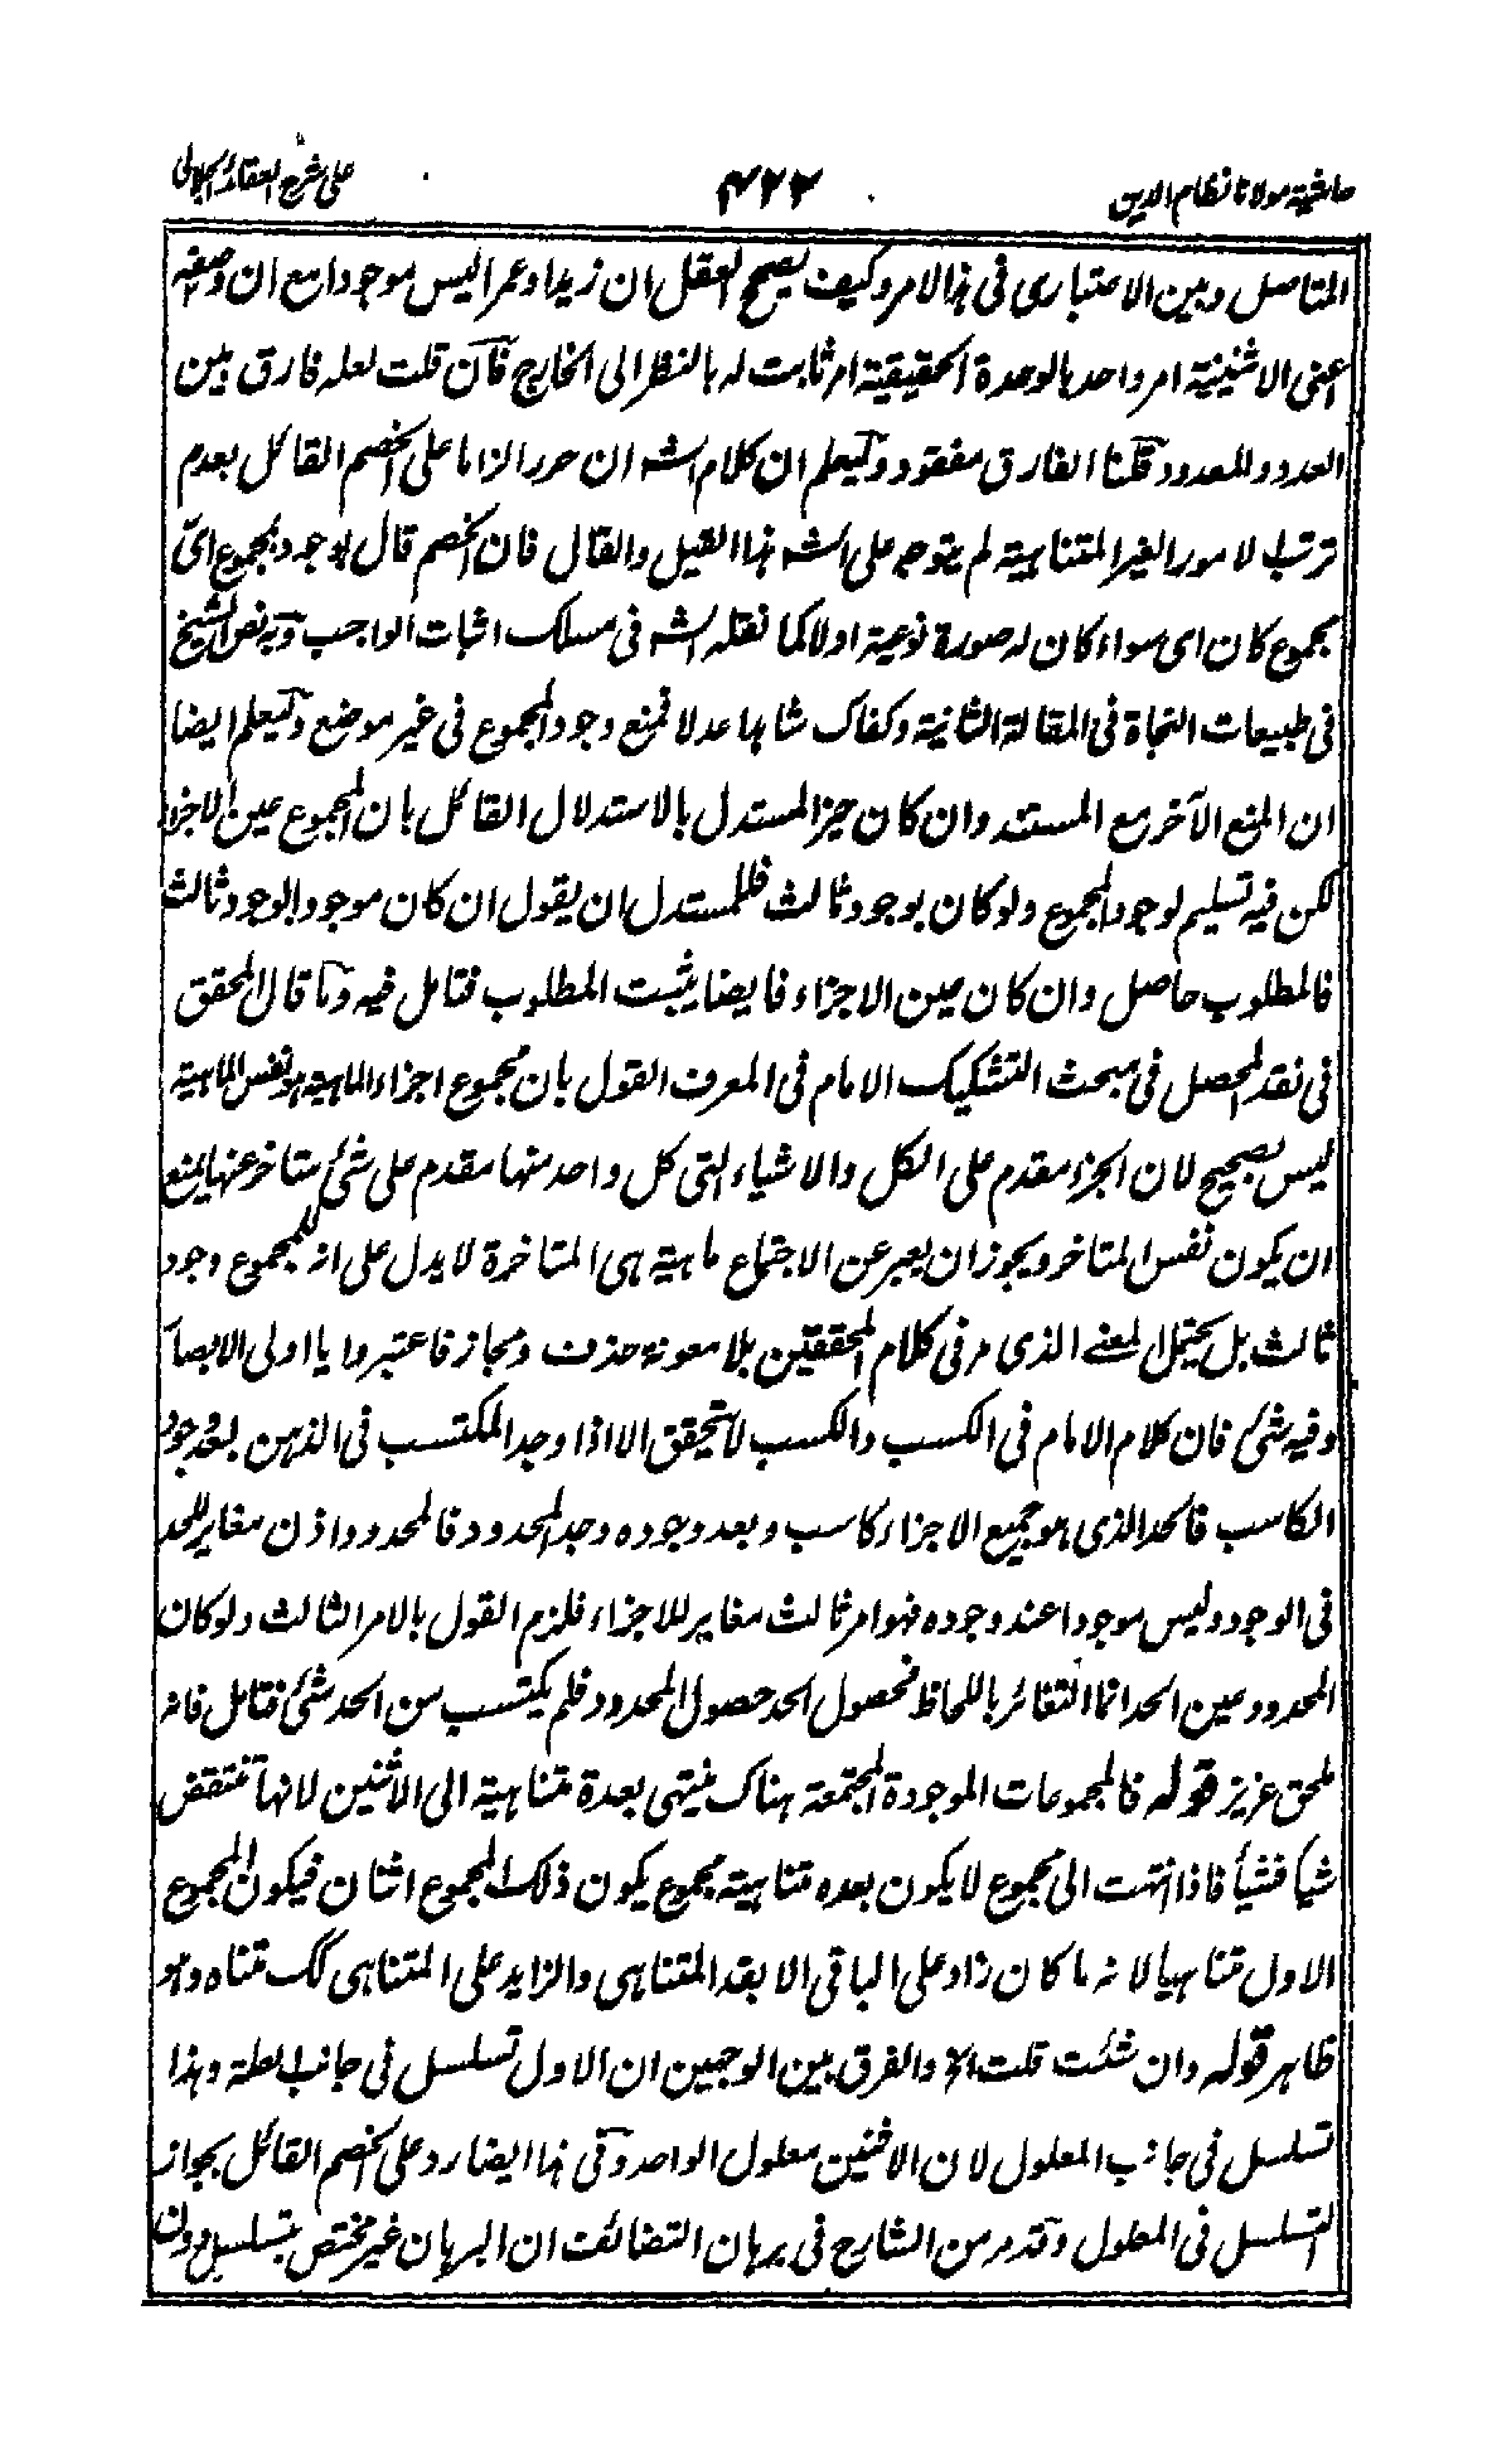 حاشية مولانا نظام الدين
٤٢٢
على شرح العقائد الجلالى
المتاصل وبين الاعتبارى فى هذا الامر وكيف يصح العقل ان زيدا وعمرا ليس موجودا مع ان وصفه
اعنى الاثنينية امر واحد بالوحدة الحقيقية امر ثابت له بالنظر الى الخارج فآن قلت لعله فارق بين
العدد والمعدود قلنا الفارق مفقود وليعلم ان كلام الشه ان حرر الزاما على الخصم القائل بعدم
ترتب الامور الغير المتناهية لم يتوجه على الشه هذا القيل والقال فان الخصم قال بوجود مجموع اىّ
مجموع كان اى سواء كان له صورة نوعية اولا كما نقله الشه فى مسلك اثبات الواجب وبه نص الشيخ
فى طبيعات النجاة فى المقالة الثانية وكفاك شاهدا عدلا فمنع وجود المجموع فى غير موضع وليعلم ايضا
ان المنع الآخر مع المستند وان كان حيز المستدل بالاستدلال القائل بان المجموع عين الاجزاء
لكن فيه تسليم لوجود المجموع ولو كان بوجود ثالث فللمستدل ان يقول ان كان موجودا بوجود ثالث
فالمطلوب حاصل وان كان عين الاجزاء فايضا يثبت المطلوب فتامل فيه وما قال المحقق
فى نقد المحصل فى مبحث التشكيك الامام فى المعرف القول بان مجموع اجزاء الماهية هو نفس الماهية
ليس بصحيح لان الجزء مقدم على الكل والاشياء التى كل واحد منها مقدم على شئ متاخر عنها يمتنع
ان يكون نفس المتاخر ويجوز ان يعبر عن الاجتماع ماهية هى المتاخرة لا يدل على انه للمجموع وجود
ثالث بل يحتمل لمعنے الذى مر فى كلام المحققين بلا معونه حذف ومجاز فاعتبروا يا اولى الابصآ
وفيه شئ فان كلام الامام فى الكسب والكسب لا يتحقق الا اذا وجد المكتسب فى الذهن بعد وجود
الكاسب فالحد الذى هو جميع الاجزاء كاسب وبعد وجوده وجد المحدود فالمحدود اذن مغاير للحد
فى الوجود وليس موجودا عند وجوده فهو امر ثالث مغاير للاجزاء فلزم القول بالامر الثالث ولو كان
المحدود عين الحد انما التغائر باللحاظ فحصول الحد حصول المحدود فلم يكتسب من الحد شئ فتامل فانه
ملحق عزيز قوله فالمجموعات الموجودة المجتمعة هناك ينتهى بعدة متناهية الى الاثنين لانها تنتقض
شيأ فشيأ فاذا انتهت الى مجموع لا يكون بعده متناهية مجموع يكون ذلك المجموع اثنان فيكون المجموع
الاول متناهيا لانه ما كان زاد على الباقى الا بقد المتناهى والزايد على المتناهى كك متناه وهو
ظاهر قوله وان شئت قلت الخ والفرق بين الوجهين ان الاول تسلسل فى جانب العلة وهذا
تسلسل فى جانب المعلول لان الاثنين معلول الواحد وفى هذا ايضا رد على الخصم القائل بجواز
التسلسل فى المعلول وقد مر من الشارح فى برهان التضائف ان البرهان غير مختص بتسلسل دون